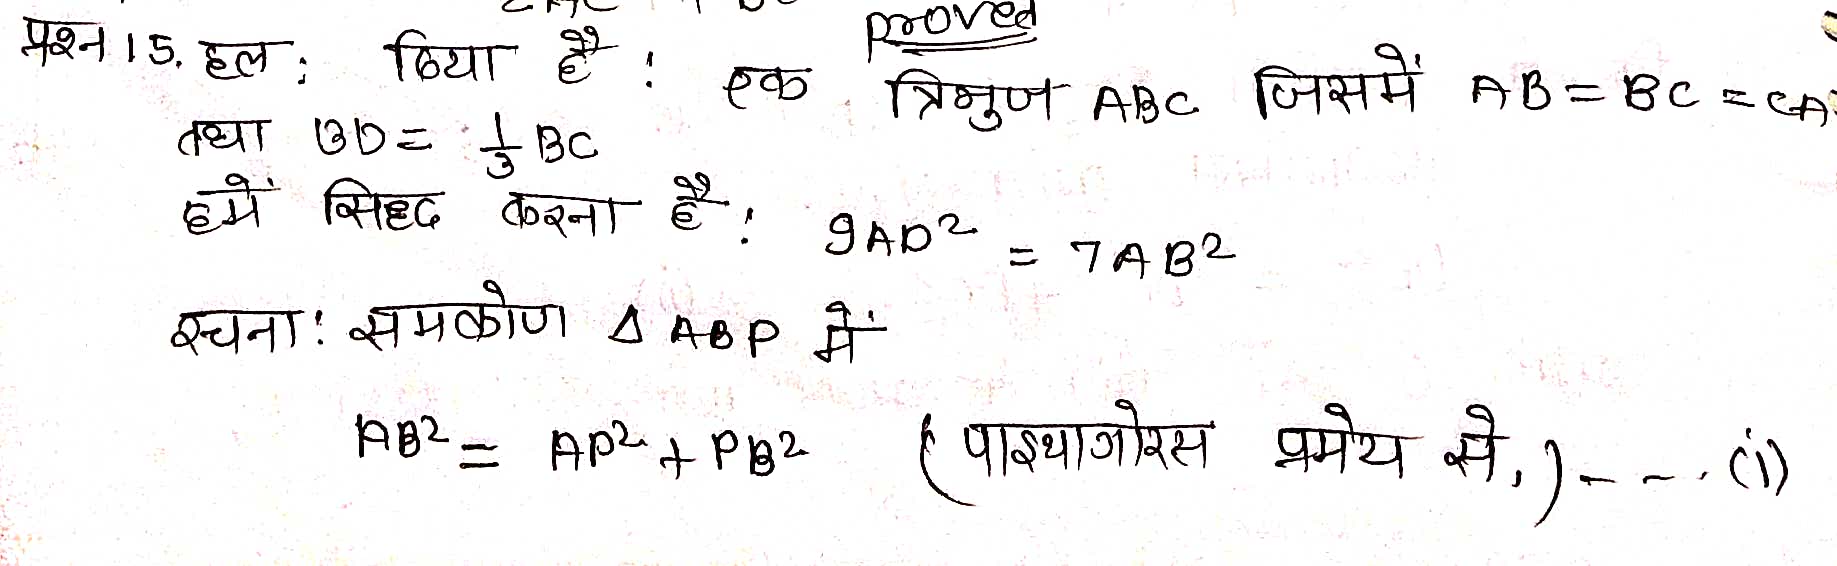 proved
प्रश्न 15. हल: दिया है: एक त्रिभुज ABC जिसमें AB = BC = CA
तथा BD = 1/3 BC
हमें सिद्ध करना है: 9AD² = 7AB²
रचना: समकोण Δ ABP में
AB² = AP² + PB² (पाइथागोरस प्रमेय से,) - - . (i)